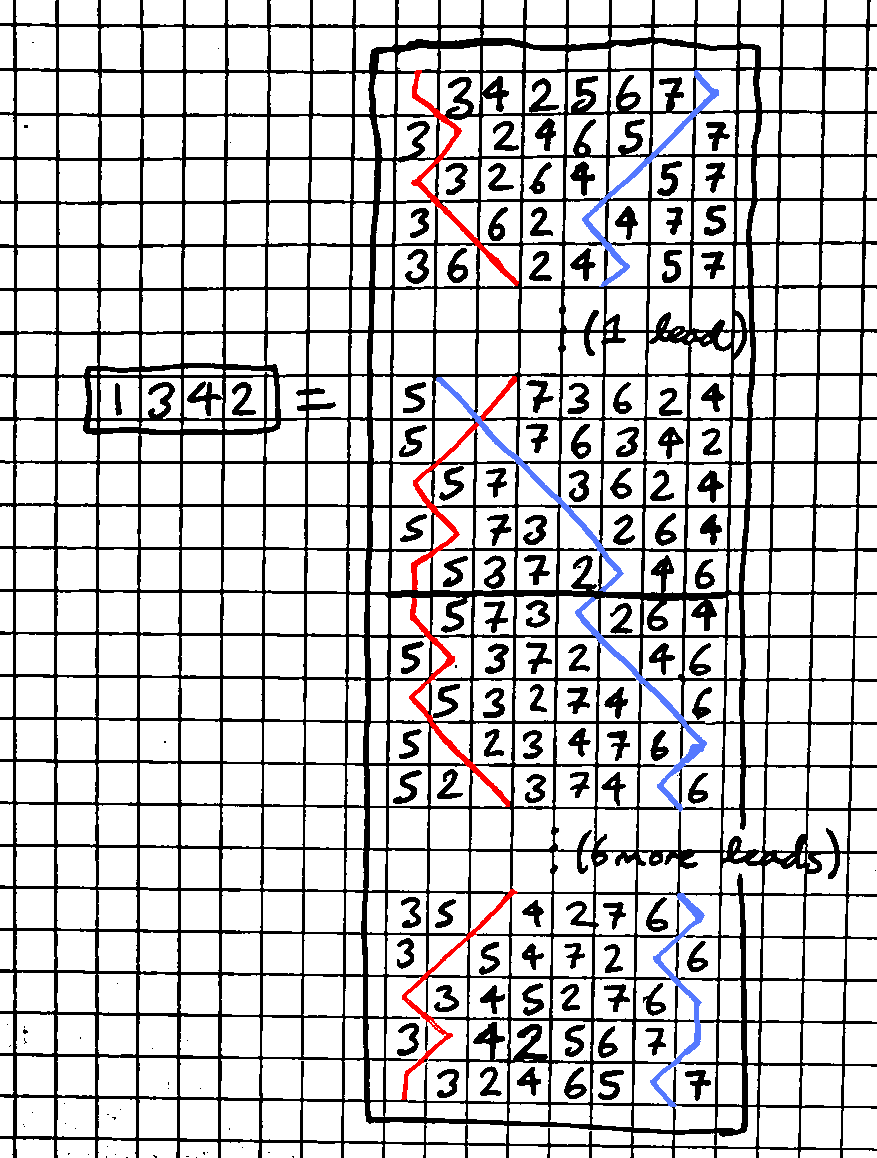 3 4 2 5 6 7
3 2 4 6 5 7
3 2 6 4 5 7
3 6 2 4 7 5
3 6 2 4 5 7
⋮ (1 lead)
1 3 4 2 =
5 7 3 6 2 4
5 7 6 3 4 2
5 7 3 6 2 4
5 7 3 2 6 4
5 3 7 2 4 6
5 7 3 2 6 4
5 3 7 2 4 6
5 3 2 7 4 6
5 2 3 4 7 6
5 2 3 7 4 6
⋮ (6 more leads)
3 5 4 2 7 6
3 5 4 7 2 6
3 4 5 2 7 6
3 4 2 5 6 7
3 2 4 6 5 7